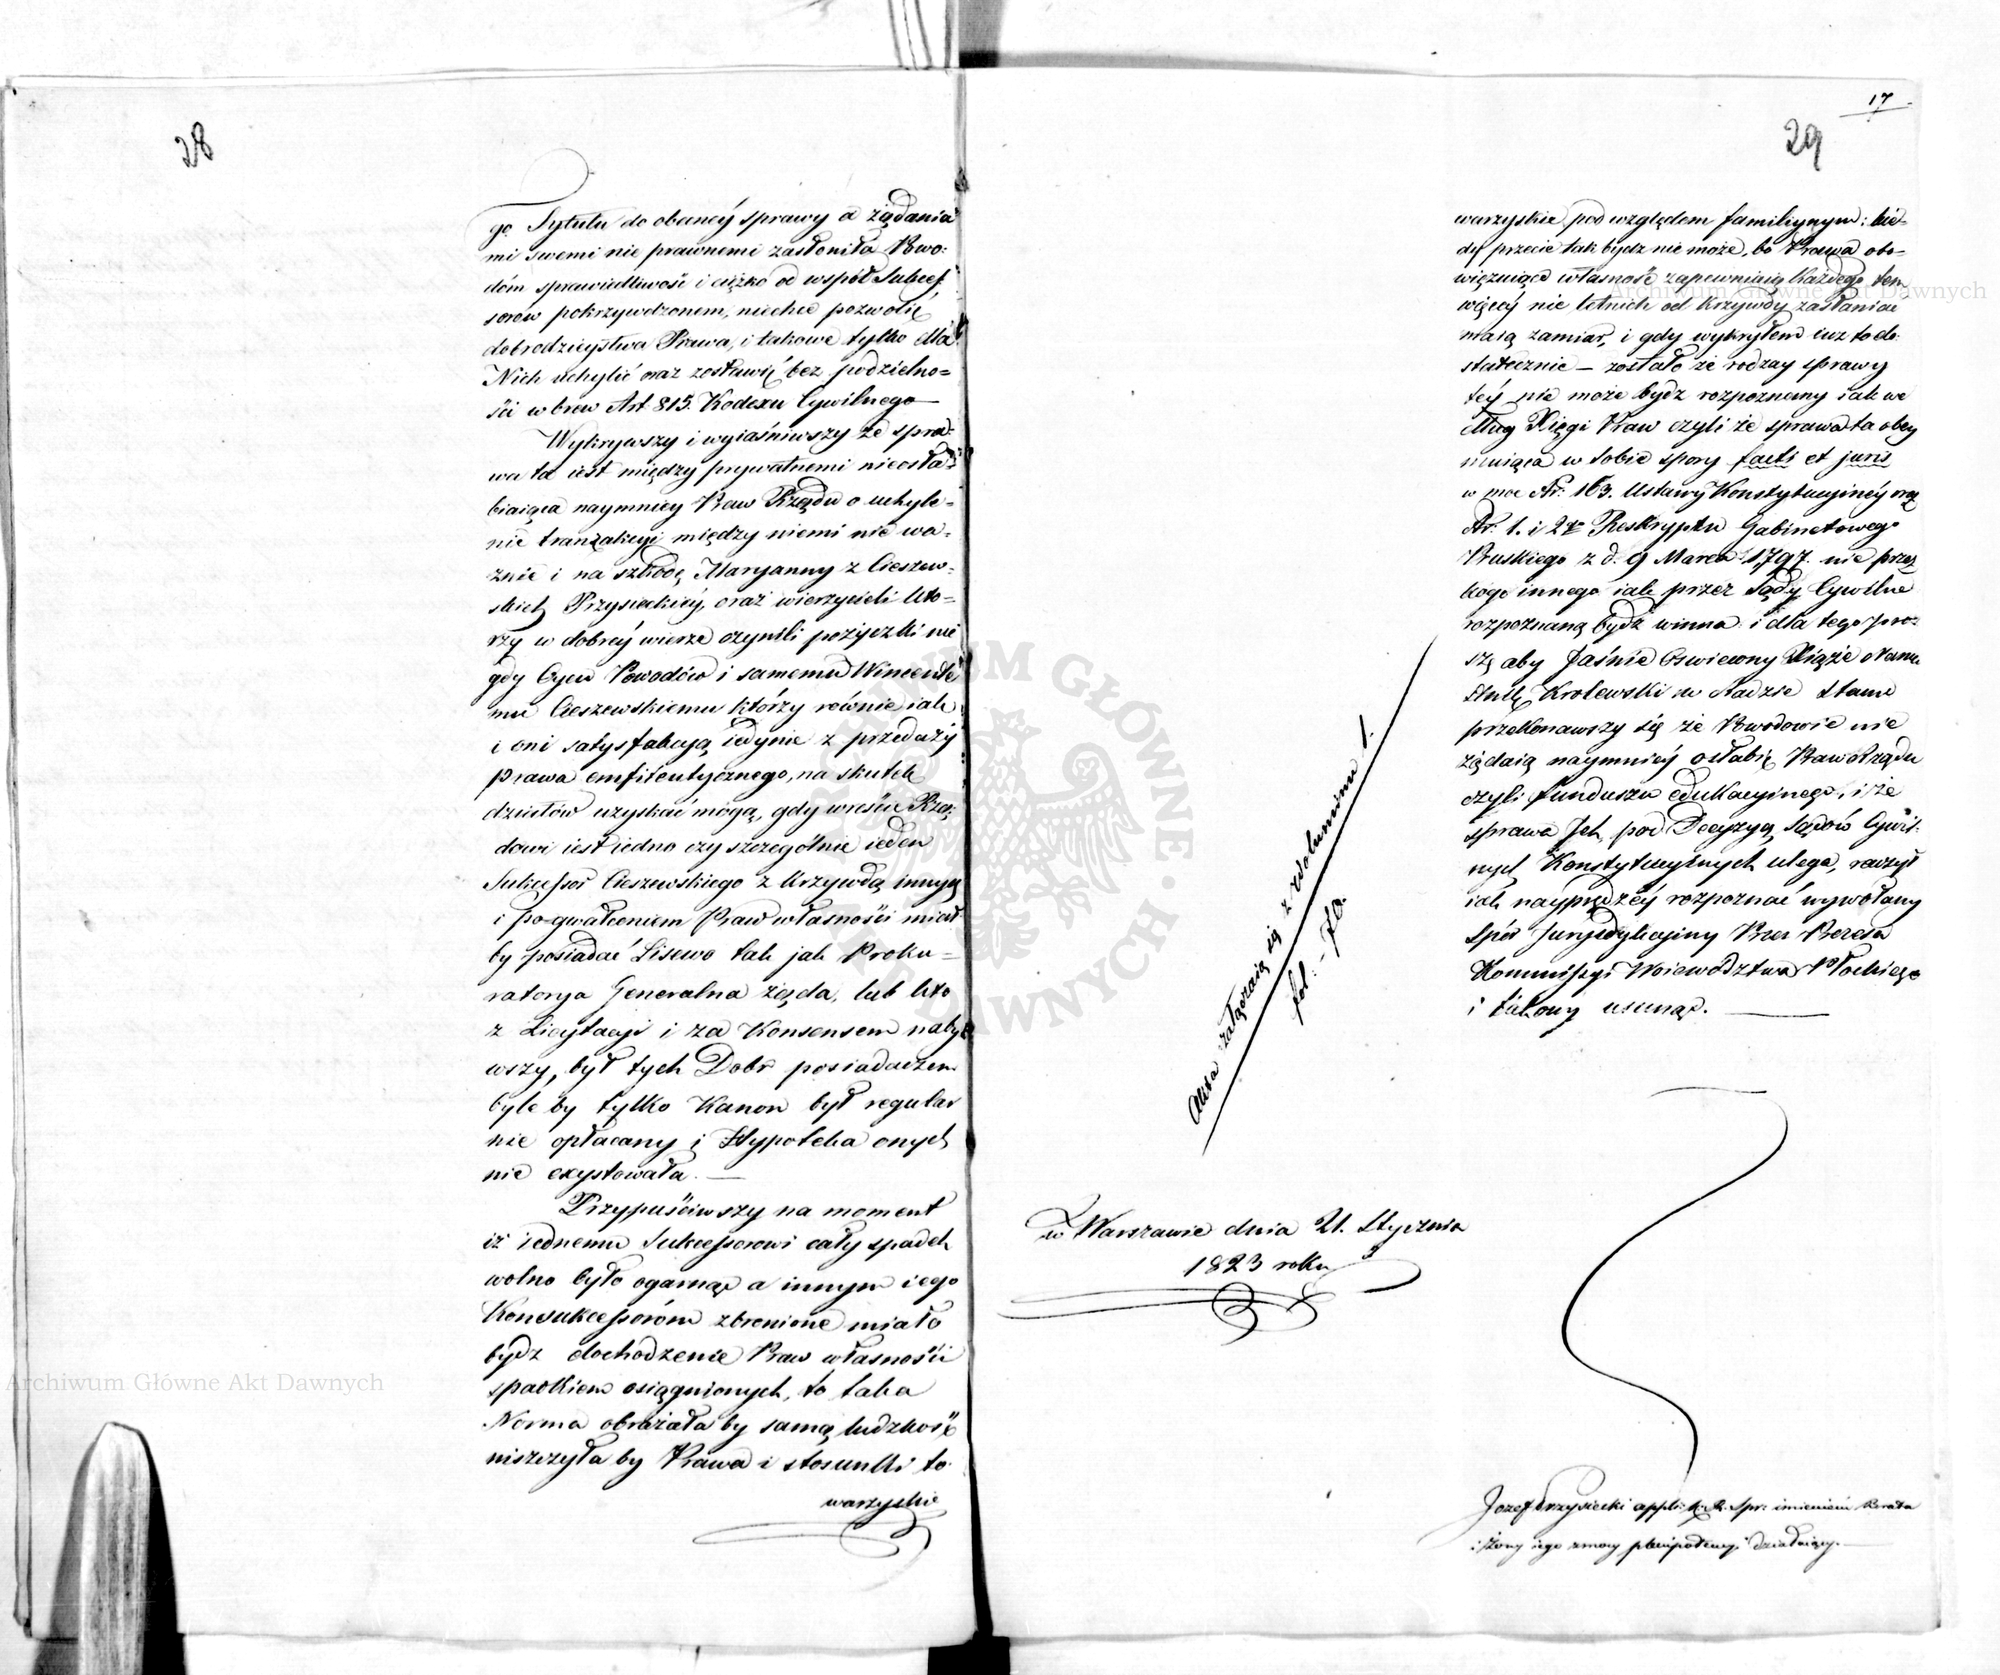 28
go Tytułu do obecnéy sprawy a żądania
mi swemi nie prawnemi zasłoniła Powo-
dóm sprawiedliwość i ciężko od współ Sukces
sorów pokrzywdzonem, niechce pozwolić
dobrodzieystwa Prawa, i takowe tylko dla
Nich uchylić oraz zostawić bez podzielno=
ści wbrew Art 815. Kodexu Cywilnego —
Wykrywszy i wyiaśniwszy że spra-
wa ta iest między prywatnemi nieosła-
biaiąca naymniey Praw Rządu o uchyle-
nie tranzakcyi między niemi nie wa-
żnie i na szkodę Maryanny z Cieszew-
skich Przysieckiéy, oraz wierzycieli kto-
rzy w dobréy wierze czynili pożyczki nie
gdy Oycu Powodów i samemu Wincente
mu Cieszewskiemu którzy równie iak
i oni satysfakcyą iedynie z przedaży
prawa emfiteutycznego, na skutek
działów uzyskać mogą, gdy wreście Rzą-
dowi iest iedno czy szczególnie ieden
Sukcessor Cieszewskiego z krzywdą innych
i pogwałceniem Praw własności miał
by posiadać Lisewo tak jak Proku-
ratorya Generalna żąda, lub kto
z Licytacyi i za Konsensem naby
wszy, był tych Dobr posiadaczem
byle by tylko Kanon był regular
nie opłacany i Hypoteka onych
nie exystowała. —
Przypuściwszy na moment
iż iednemu Sukcessorowi cały spadek
wolno było ogarnąć a innym iego
Konsukcessoróm zbronione miało
bydz dochodzenie Praw własności
spadkiem osiągnionych, to taka
Norma obrażała by samą ludzkość
niszczyła by Prawa i stosunki to
warzyskie
17
29
warzyskie pod względem familiynym; kie-
dy przecie tak bydz nie może, bo Prawa obo-
więzuiące własność zapewniaią każdego tem
więcéy nie letnich od krzywdy zasłaniać
maią zamiar, i gdy wykryłem iuż to do-
statecznie — zostało że rodzay sprawy
téy nie może bydz rozpoznany iak we
dług Xięgi Praw czyli że sprawa ta obey
muiąca w sobie spory facti et juris
w moc Ar: 163. Ustawy Konstytucyinéy oraz
Ar: 1. i 2go Reskryptu Gabinetowego
Pruskiego z d. 9 Marca 1,797. nie przez
kogo innego iak przez Sądy Cywilne
rozpoznaną bydź winna i dla tego pro-
szę aby Jaśnie Oswiecony Xiąże Namie
stnik Krolewski w Radzie Stanu
przekonawszy się że Powodowie nie
żądaią naymniéy osłabić Praw Rządu
czyli funduszu edukacyinego, i że
sprawa Jch, pod Decyzyą Sądów Cywil-
nych Konstytucyinych ulega, raczył
iak naypredzéy rozpoznać wywołany
Spór Jurysdykcyiny Przez Prezesa
Kommissyi Woiewództwa Płockiego
i takowy usunąć. —
Akta załączaią się z voluminu 1.
fol: -
w Warszawie dnia 21. Stycznia
1823 roku
Jozef Przysiecki appli: Spr: imieniem Brata
i Żony iego z mocy plenipotencyi działaiący. —
Archiwum Główne Akt Dawnych
Archiwum Główne Akt Dawnych
ARCHIWUM GŁÓWNE AKT DAWNYCH